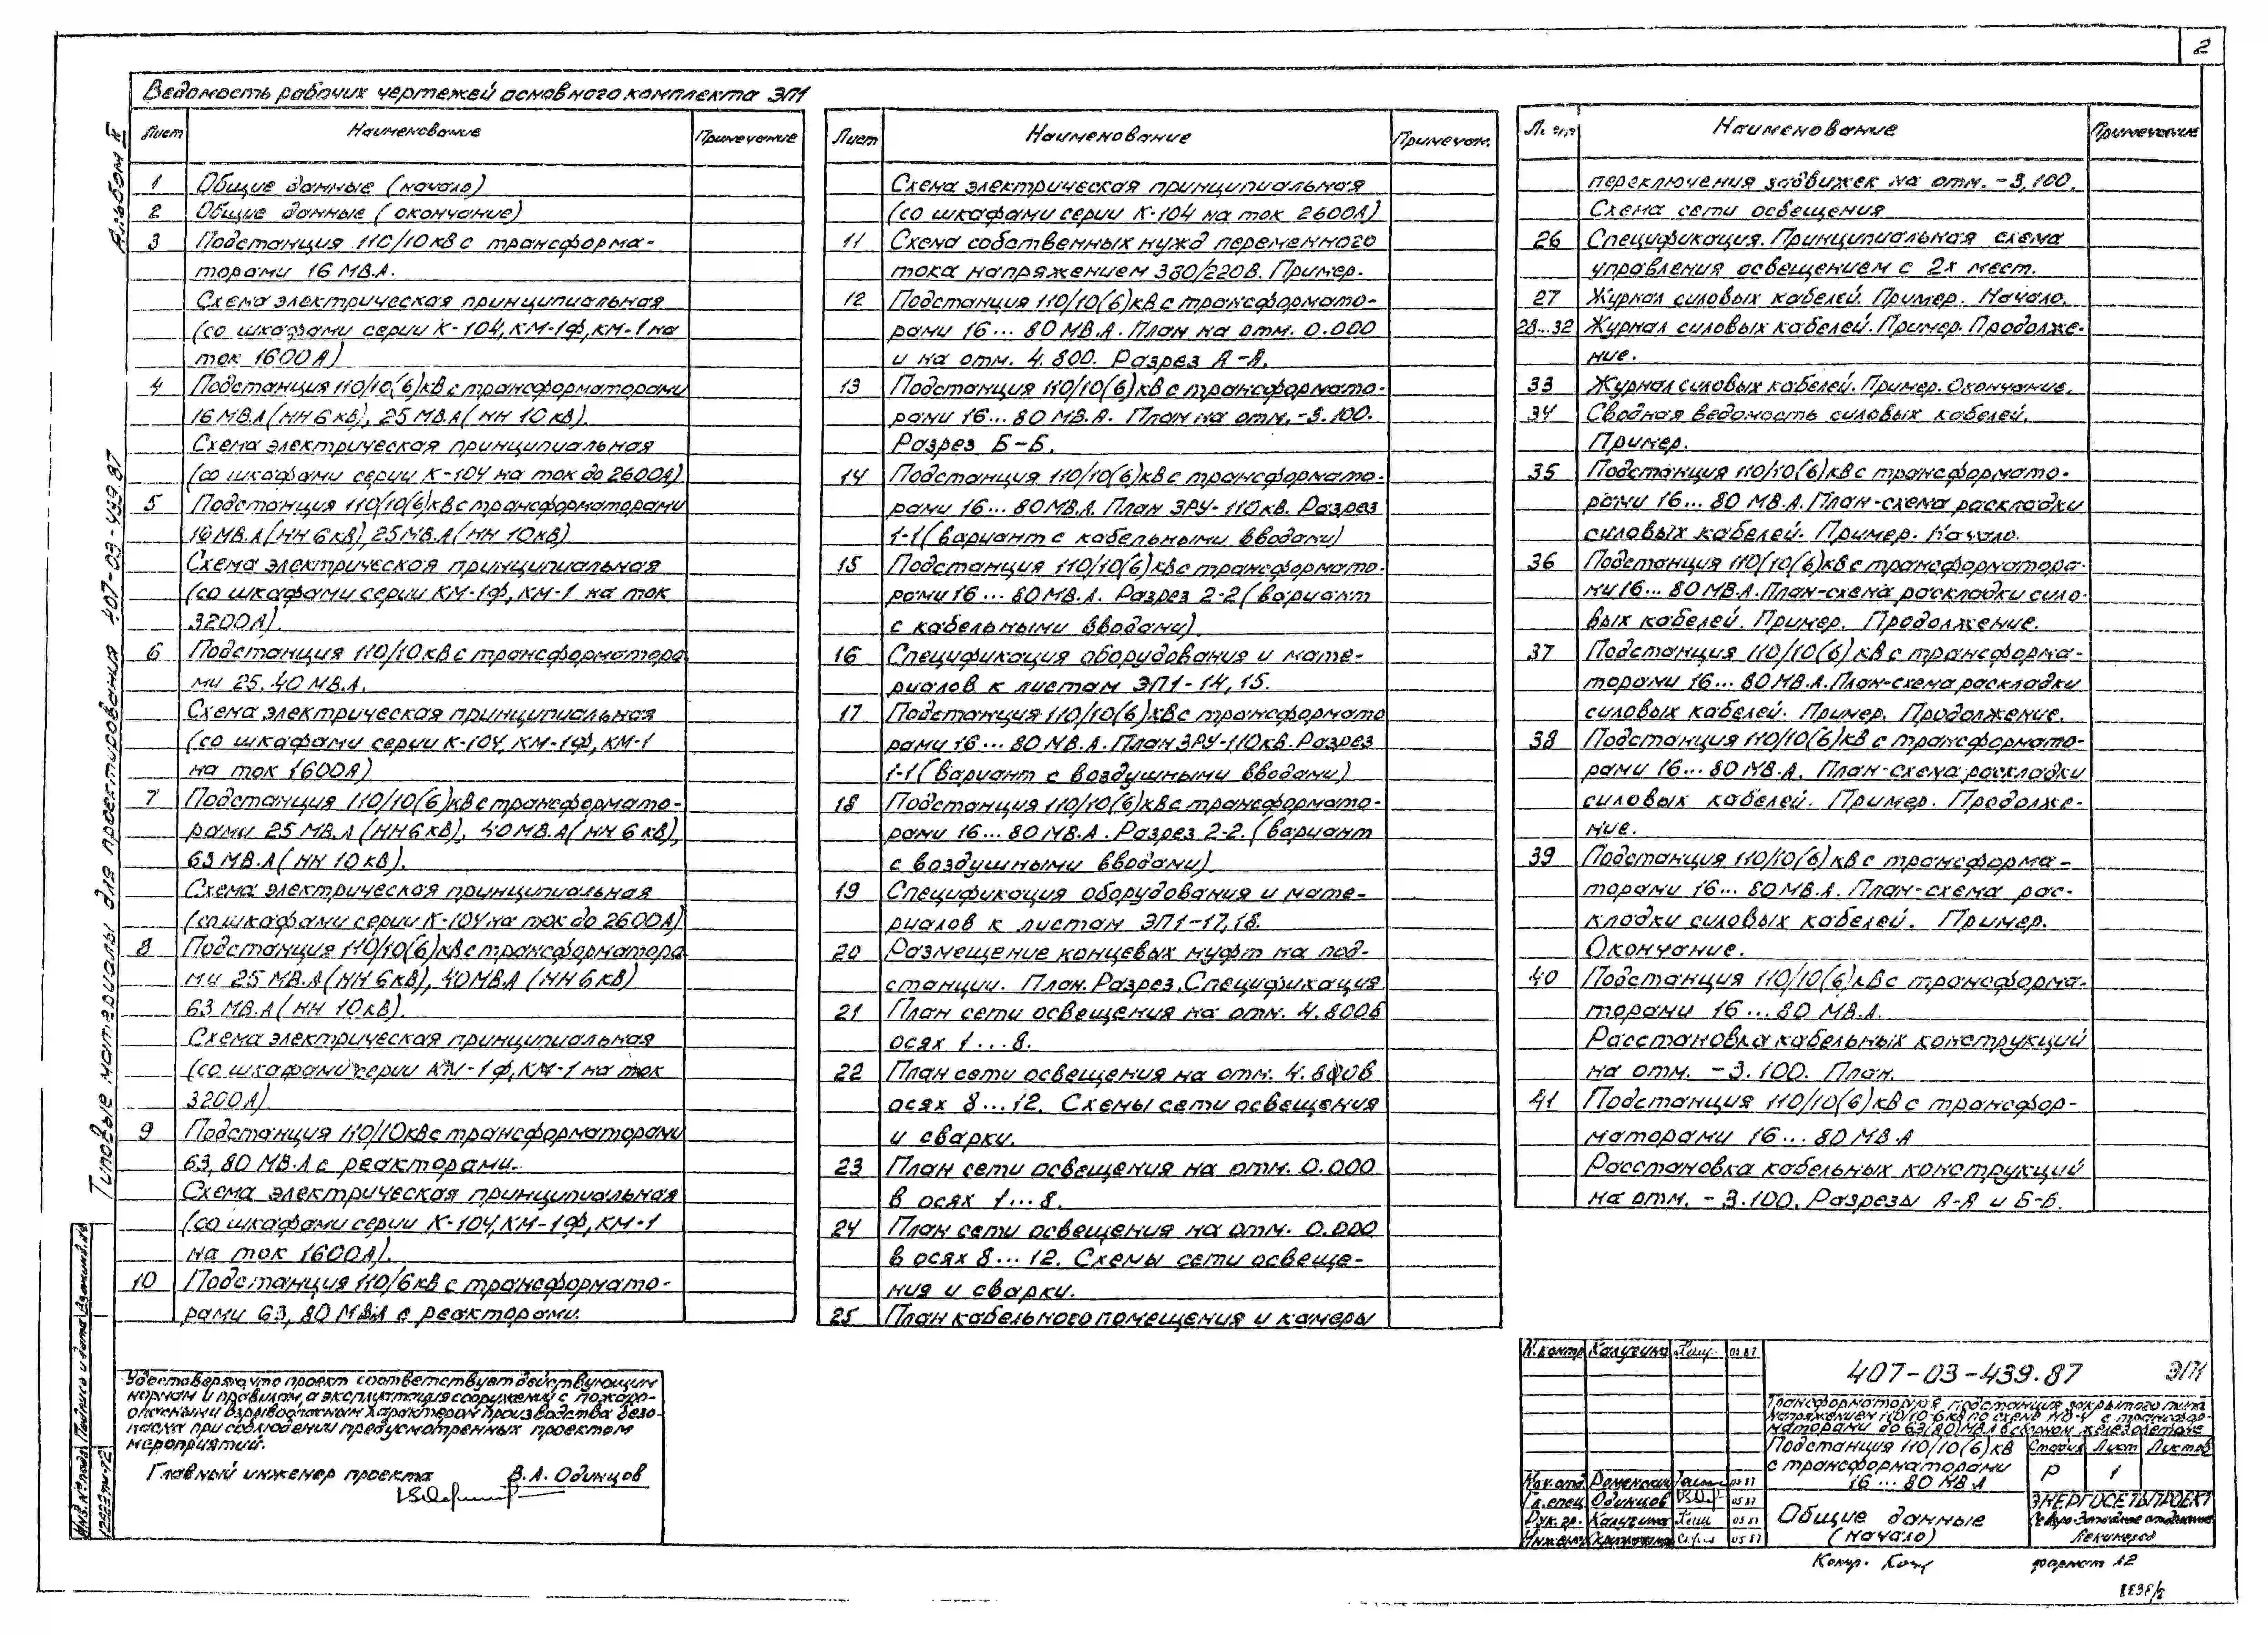 2
Ведомость рабочих чертежей основного комплекта ЭП1
Лист Наименование Примечание
1 Общие данные (начало)
2 Общие данные (окончание)
3 Подстанция 110/10кВ с трансформа-
торами 16 МВ.А.
Схема электрическая принципиальная
(со шкафами серии К-104, КМ-1Ф, КМ-1 на
ток 1600А)
4 Подстанция 110/10(6)кВ с трансформаторами
16 МВ.А (НН 6кВ), 25 МВ.А (НН 10кВ).
Схема электрическая принципиальная
(со шкафами серии К-104 на ток до 2600А)
5 Подстанция 110/10(6)кВ с трансформаторами
16 МВ.А (НН 6кВ), 25 МВ.А (НН 10кВ)
Схема электрическая принципиальная
(со шкафами серии КМ-1Ф, КМ-1 на ток
3200А).
6 Подстанция 110/10кВ с трансформатора
ми 25, 40 МВ.А.
Схема электрическая принципиальная
(со шкафами серии К-104, КМ-1Ф, КМ-1
на ток 1600А)
7 Подстанция 110/10(6)кВ с трансформато-
рами 25 МВ.А (НН 6кВ), 40 МВ.А (НН 6кВ),
63 МВ.А (НН 10кВ).
Схема электрическая принципиальная
(со шкафами серии К-104 на ток до 2600А)
8 Подстанция 110/10(6)кВ с трансформатора
ми 25 МВ.А (НН 6кВ), 40 МВ.А (НН 6кВ)
63 МВ.А (НН 10кВ).
Схема электрическая принципиальная
(со шкафами серии КМ-1Ф, КМ-1 на ток
3200А)
9 Подстанция 110/10кВ с трансформаторами
63, 80 МВ.А с реакторами.
Схема электрическая принципиальная
(со шкафами серии К-104, КМ-1Ф, КМ-1
на ток 1600А).
10 Подстанция 110/6кВ с трансформато-
рами 63, 80 МВ.А с реакторами.
Лист Наименование Примечан.
Схема электрическая принципиальная
(со шкафами серии К-104 на ток 2600А)
11 Схема собственных нужд переменного
тока напряжением 380/220В. Пример.
12 Подстанция 110/10(6)кВ с трансформато-
рами 16... 80 МВ.А. План на отм. 0.000
и на отм. 4.800. Разрез А-А.
13 Подстанция 110/10(6)кВ с трансформато-
рами 16... 80 МВ.А. План на отм. -3.100.
Разрез Б-Б.
14 Подстанция 110/10(6)кВ с трансформато-
рами 16... 80 МВ.А. План ЗРУ-110кВ. Разрез
1-1 (вариант с кабельными вводами)
15 Подстанция 110/10(6)кВ с трансформато-
рами 16... 80 МВ.А. Разрез 2-2 (вариант
с кабельными вводами)
16 Спецификация оборудования и мате-
риалов к листам ЭП1-14, 15.
17 Подстанция 110/10(6)кВ с трансформато
рами 16... 80 МВ.А. План ЗРУ-110кВ. Разрез
1-1 (вариант с воздушными вводами)
18 Подстанция 110/10(6)кВ с трансформато-
рами 16... 80 МВ.А. Разрез 2-2. (вариант
с воздушными вводами)
19 Спецификация оборудования и мате-
риалов к листам ЭП1-17, 18.
20 Размещение концевых муфт на под-
станции. План. Разрез. Спецификация
21 План сети освещения на отм. 4.800 в
осях 1...8.
22 План сети освещения на отм. 4.800 в
осях 8...12. Схемы сети освещения
и сварки.
23 План сети освещения на отм. 0.000
в осях 1...8.
24 План сети освещения на отм. 0.000
в осях 8...12. Схемы сети освеще-
ния и сварки.
25 План кабельного помещения и камеры
Лист Наименование Примечание
переключения задвижек на отм. -3.100.
Схема сети освещения
26 Спецификация. Принципиальная схема
управления освещением с 2х мест.
27 Журнал силовых кабелей. Пример. Начало.
28...32 Журнал силовых кабелей. Пример. Продолже-
ние.
33 Журнал силовых кабелей. Пример. Окончание.
34 Сводная ведомость силовых кабелей.
Пример.
35 Подстанция 110/10(6)кВ с трансформато-
рами 16... 80 МВ.А. План-схема раскладки
силовых кабелей. Пример. Начало.
36 Подстанция 110/10(6)кВ с трансформатора-
ми 16... 80 МВ.А. План-схема раскладки сило-
вых кабелей. Пример. Продолжение.
37 Подстанция 110/10(6)кВ с трансформа-
торами 16... 80 МВ.А. План-схема раскладки
силовых кабелей. Пример. Продолжение.
38 Подстанция 110/10(6)кВ с трансформато-
рами 16... 80 МВ.А. План-схема раскладки
силовых кабелей. Пример. Продолже-
ние.
39 Подстанция 110/10(6)кВ с трансформа-
торами 16... 80 МВ.А. План-схема рас-
кладки силовых кабелей. Пример.
Окончание.
40 Подстанция 110/10(6)кВ с трансформа-
торами 16... 80 МВ.А.
Расстановка кабельных конструкций
на отм. -3.100. План.
41 Подстанция 110/10(6)кВ с трансфор-
маторами 16... 80 МВ.А
Расстановка кабельных конструкций
на отм. -3.100. Разрезы А-А и Б-Б.
Альбом II
Типовые материалы для проектирования 407-03-439.87
Инв. № подл. Подпись и дата Взам.инв.№
Удостоверяю, что проект соответствует действующим
нормам и правилам, а эксплуатация сооружений с пожаро-
опасным и взрывоопасным характером производства безо-
пасна при соблюдении предусмотренных проектом
мероприятий.
Главный инженер проекта В.А. Одинцов
Н.контр. Калугина 05.87
Нач.отд. Роменский 05.87
Гл.спец. Одинцов 05.87
Рук.гр. Калугина 05.87
Инженер 05.87
407-03-439.87 ЭП1
Трансформаторная подстанция закрытого типа
напряжением 110/10-6кВ по схеме 110-4 с трансфор-
маторами до 63(80) МВ.А в сборном железобетоне
Подстанция 110/10(6)кВ
с трансформаторами
16... 80 МВ.А
Стадия Лист Листов
Р 1
Общие данные
(начало)
ЭНЕРГОСЕТЬПРОЕКТ
Северо-Западное отделение
Ленинград
Копир.
формат А2